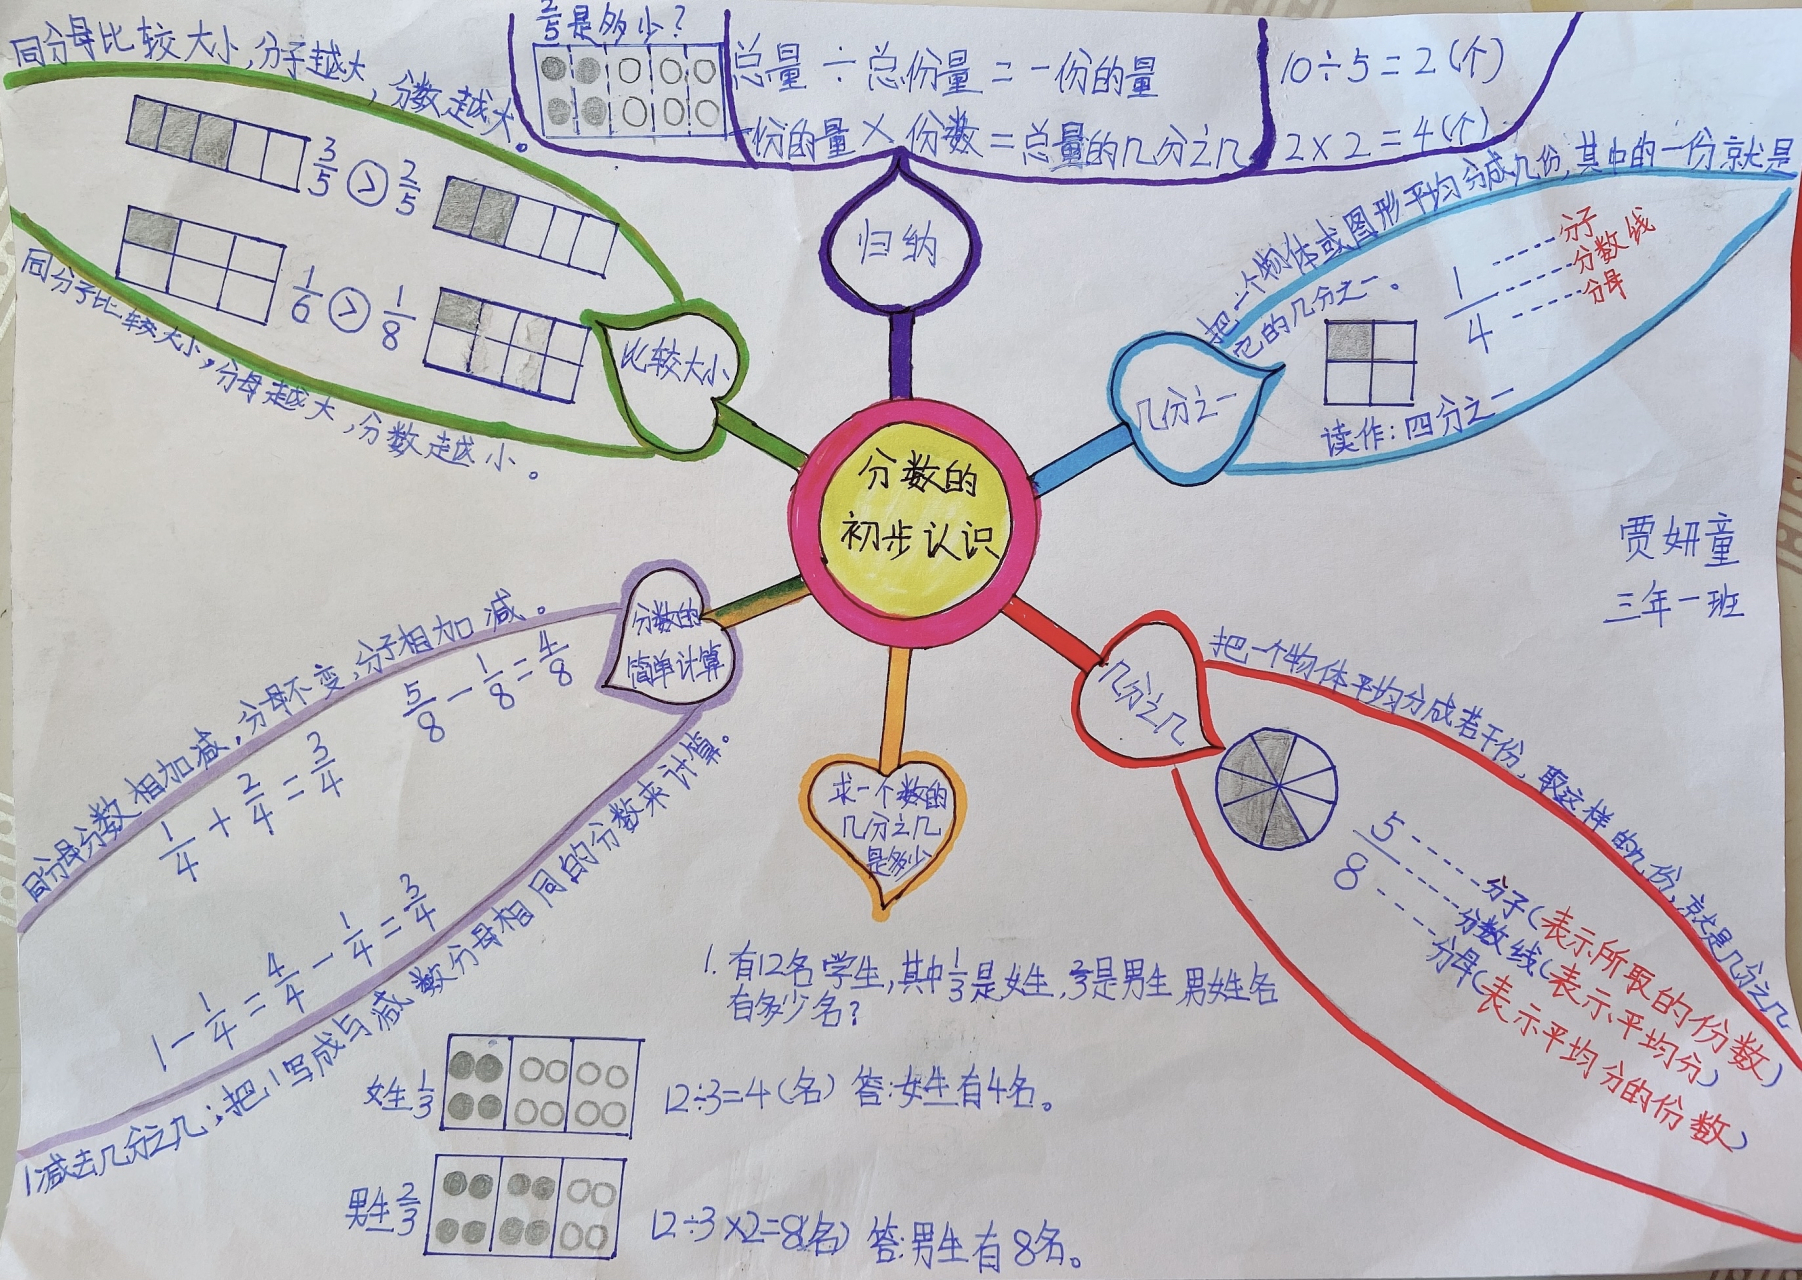 分数的
初步认识
归纳
2/5是多少?
总量÷总份量=一份的量
一份的量×份数=总量的几分之几
10÷5=2(个)
2×2=4(个)
几分之一
把一个物体或图形平均分成几份,其中的一份就是
它的几分之一。
1/4
分子
分数线
分母
读作:四分之一
贾妍童
三年一班
几分之几
把一个物体平均分成若干份,取这样的几份,就是几分之几
5/8
分子(表示所取的份数)
分数线(表示平均分)
分母(表示平均分的份数)
求一个数的
几分之几
是多少
1.有12名学生,其中1/3是女生,2/3是男生男女生各
有多少名?
女生1/3
12÷3=4(名) 答:女生有4名。
男生2/3
12÷3×2=8(名) 答:男生有8名。
分数的
简单计算
同分母分数相加减,分母不变,分子相加减。
5/8-1/8=4/8
1/4+2/4=3/4
1-1/4=4/4-1/4=3/4
1减去几分之几;把1写成与减数分母相同的分数来计算。
比较大小
同分母比较大小,分子越大,分数越大。
3/5>2/5
1/6>1/8
同分子比较大小,分母越大,分数越小。